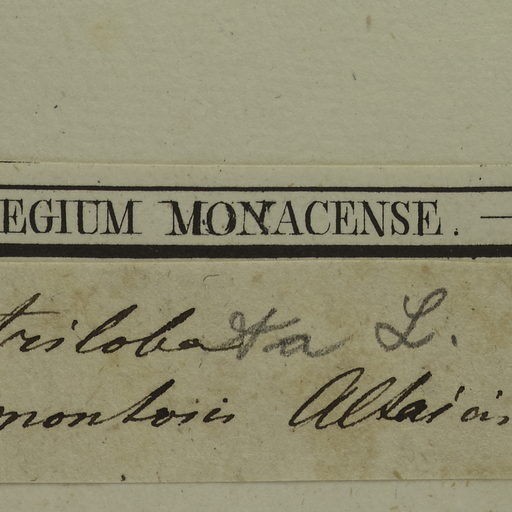 EGIUM MONACENSE. —
trilobata L.
montosis Altaicis